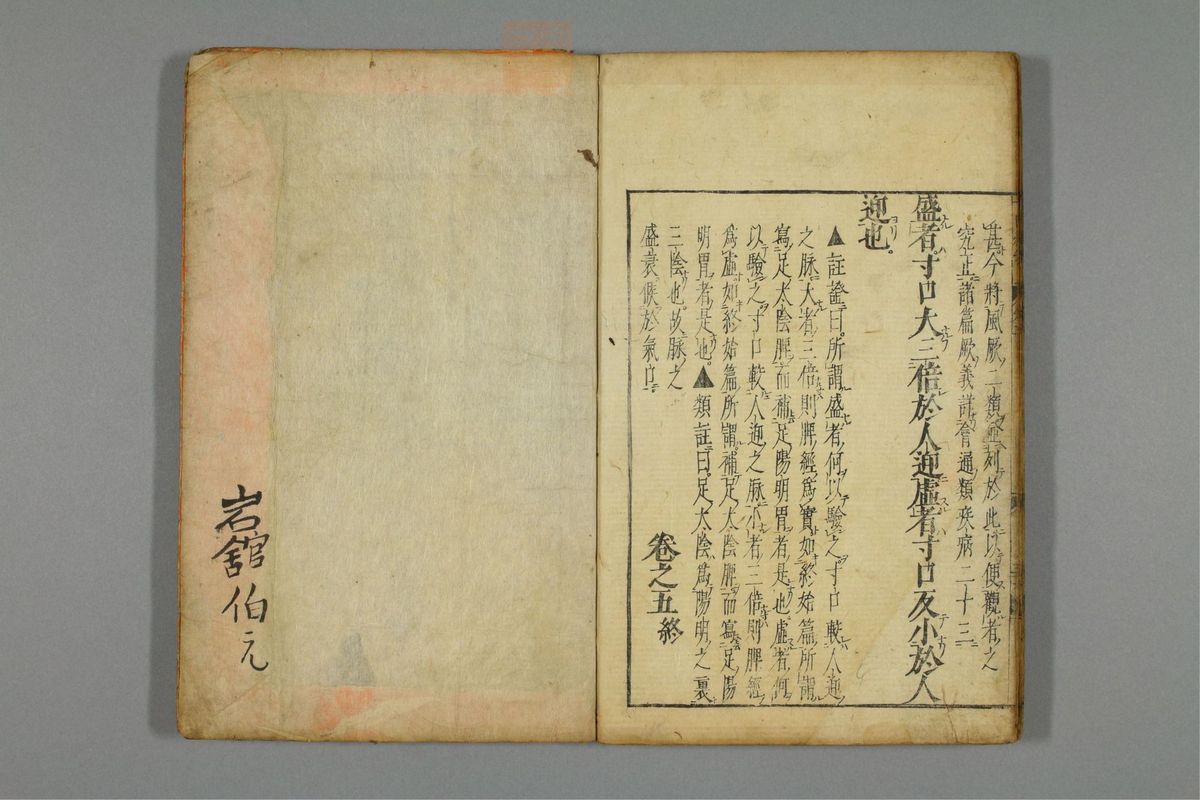 甚今將風厥二類並列於此以便觀者之
究正諸篇厥義詳會通類疾病二十三
盛者寸口大三倍於人迎虛者寸口反小於人
迎也。
▲註證曰。所謂盛者何以驗之寸口較人迎
之脉大者三倍則脾經爲實如終始篇所謂
寫足太陰脾而補足陽明胃者是也虛者何
以驗之。寸口較人迎之脉小者三倍則脾經
爲虛如終始篇所謂補足太陰脾而寫足陽
明胃者是也。▲類註曰。足太陰爲陽明之裏
三陰也。故脉之
盛衰候於氣口
卷之五終
岩舘伯元